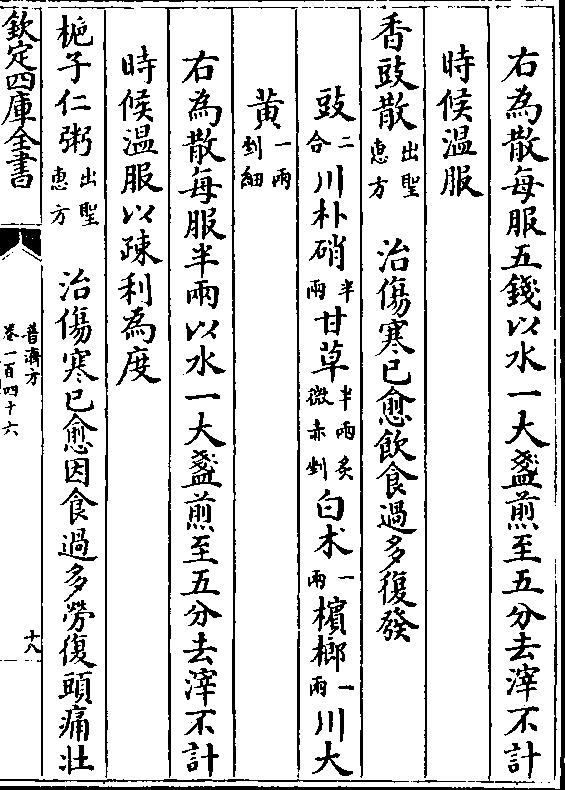 右為散每服五錢以水一大盞煎至五分去滓不計
時候温服
香豉散出聖惠方　治傷寒已愈飲食過多復發
豉二合川朴硝半兩甘草半兩炙微赤剉白术一兩檳榔一兩川大
黄一兩剉細
右為散每服半兩以水一大盞煎至五分去滓不計
時候温服以疎利為度
梔子仁粥出聖惠方　治傷寒已愈因食過多勞復頭痛壯
欽定四庫全書
普濟方
卷一百四十六
十八